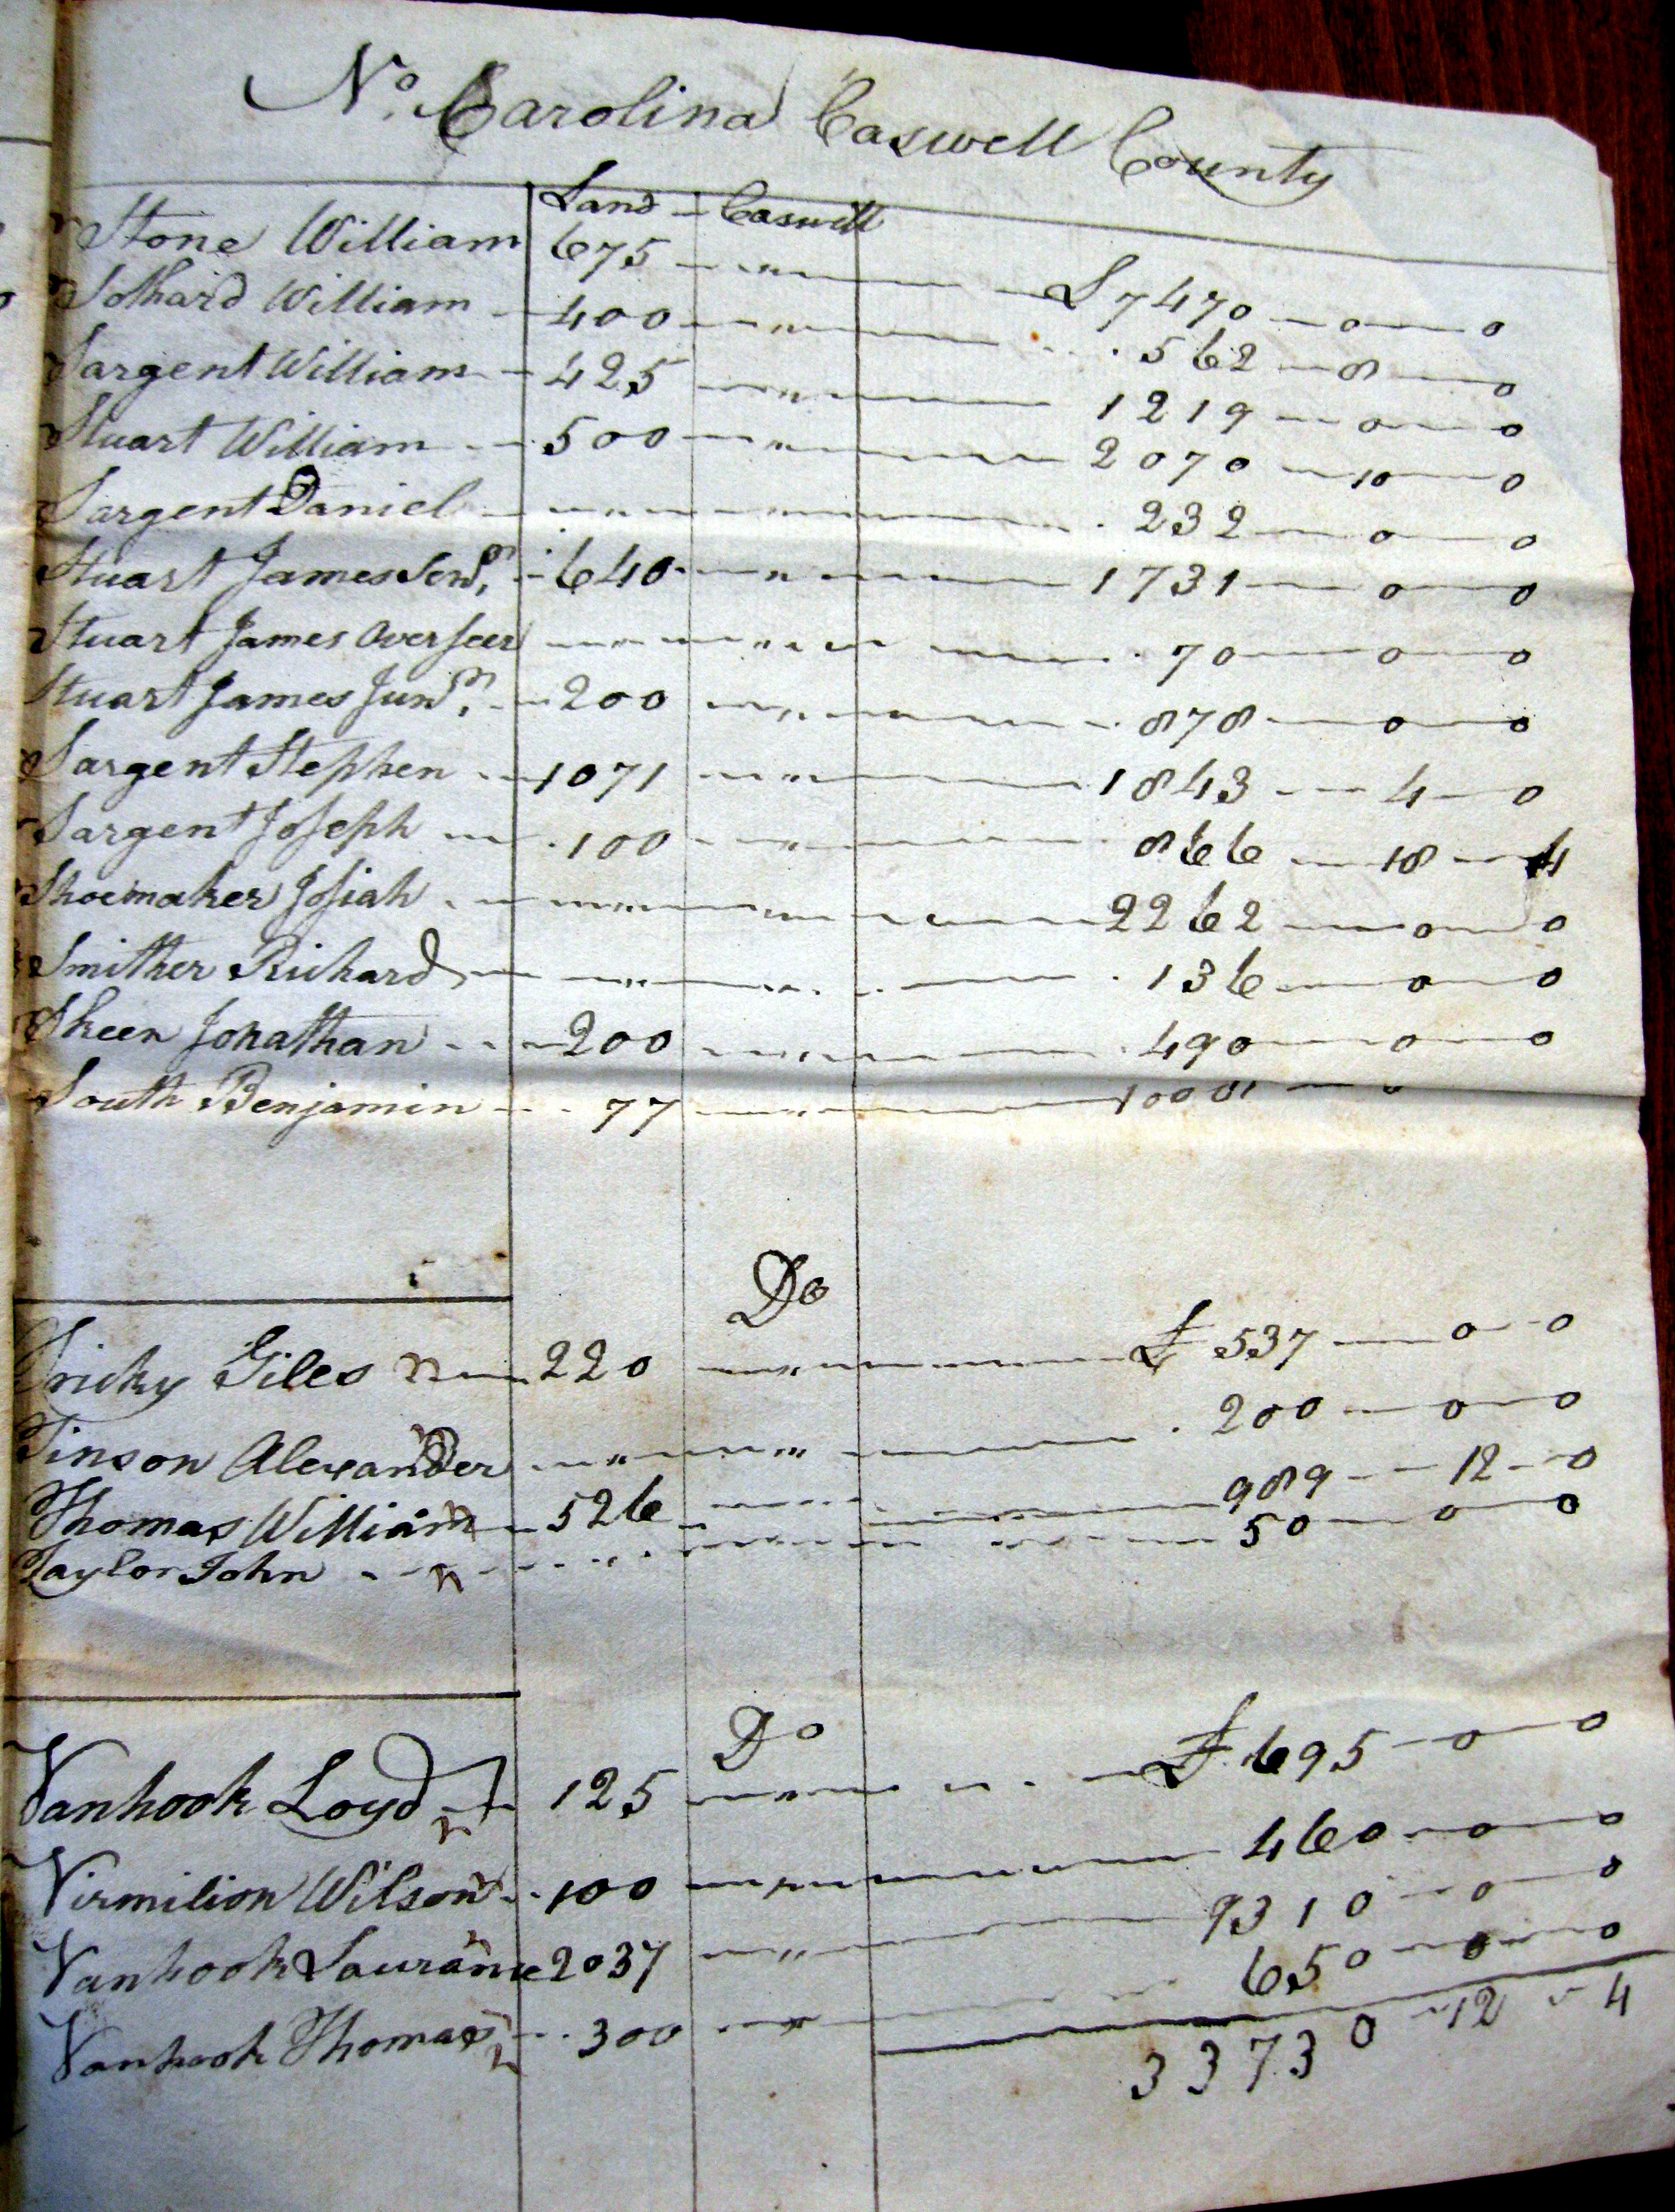 No. Carolina Caswell County
Land Caswell
Stone William 675 " £ 7470 — 0 — 0
Sothard William 400 " 562 — 8 — 0
Sargent William 425 " 1219 — 0 — 0
Stuart William 500 " 2070 — 10 — 0
Sargent Daniel " " 232 — 0 — 0
Stuart James Senr. 640 " 1731 — 0 — 0
Stuart James Overseer " " 70 — 0 — 0
Stuart James Junr. 200 " 878 — 0 — 0
Sargent Stephen 1071 " 1843 — 4 — 0
Sargent Joseph 100 " 866 — 18 — 4
Shoemaker Josiah " 2262 — 0 — 0
Smither Richard " " 136 — 0 — 0
Skeen Jonathan 200 " 490 — 0 — 0
South Benjamin 77 " — 0
Do
Giles n 220 " £ 537 — 0 — 0
Tinson Alexander " " 200 — 0 — 0
Thomas William 526 989 — 12 — 0
Taylor John n " 50 — 0 — 0
Do
Vanhook Loyd n 125 " £ 695 — 0 — 0
Virmilion Wilson 100 " 460 — 0 — 0
Vanhook 2037 " 9310 — 0 — 0
Vanhook Thomas n 300 " 650 — 0 — 0
33730 — 12 — 4